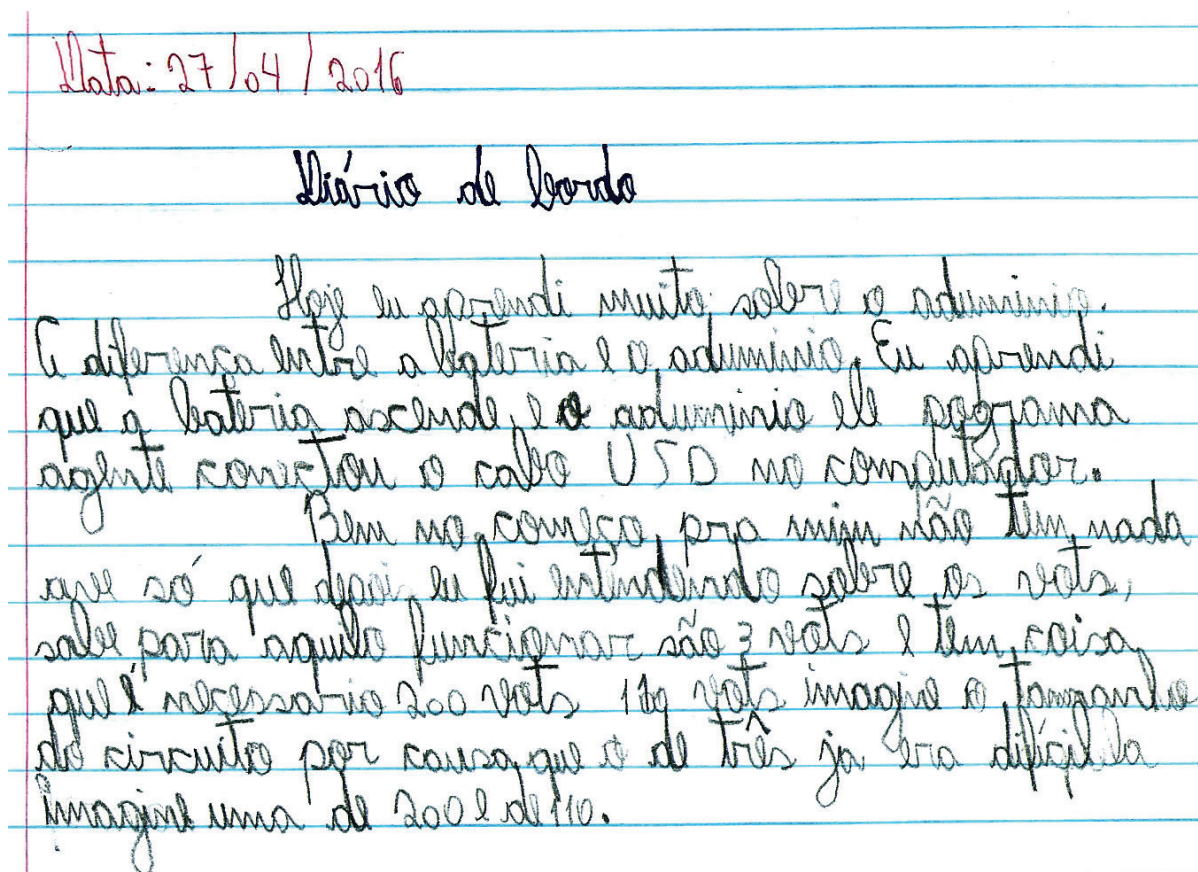 Data: 27/04/2016
Diário de bordo
Hoje eu aprendi muito sobre o aduminio.
A diferença entre a bateria e o aduminio, Eu aprendi
que a bateria ascende, e o aduminio ele pograma
agente conectou o cabo USD no computador.
Bem no começo, pra mim não tem nada
que só que depois eu fui entendendo sobre os vots,
sabe para aquilo funcionar são 3 vots e tem coisa
que é necessario 200 vots 110 vots imagine o tamanho
do circuito por causa que o de três ja era difícil
imagine uma de 200 e de 110.